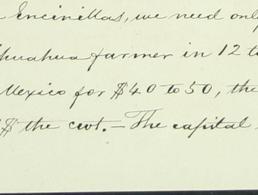 Encinillas, we need only
huahua farmer in 12 to
Mexico for $40 to 50, the
$ the cwt. — The capital